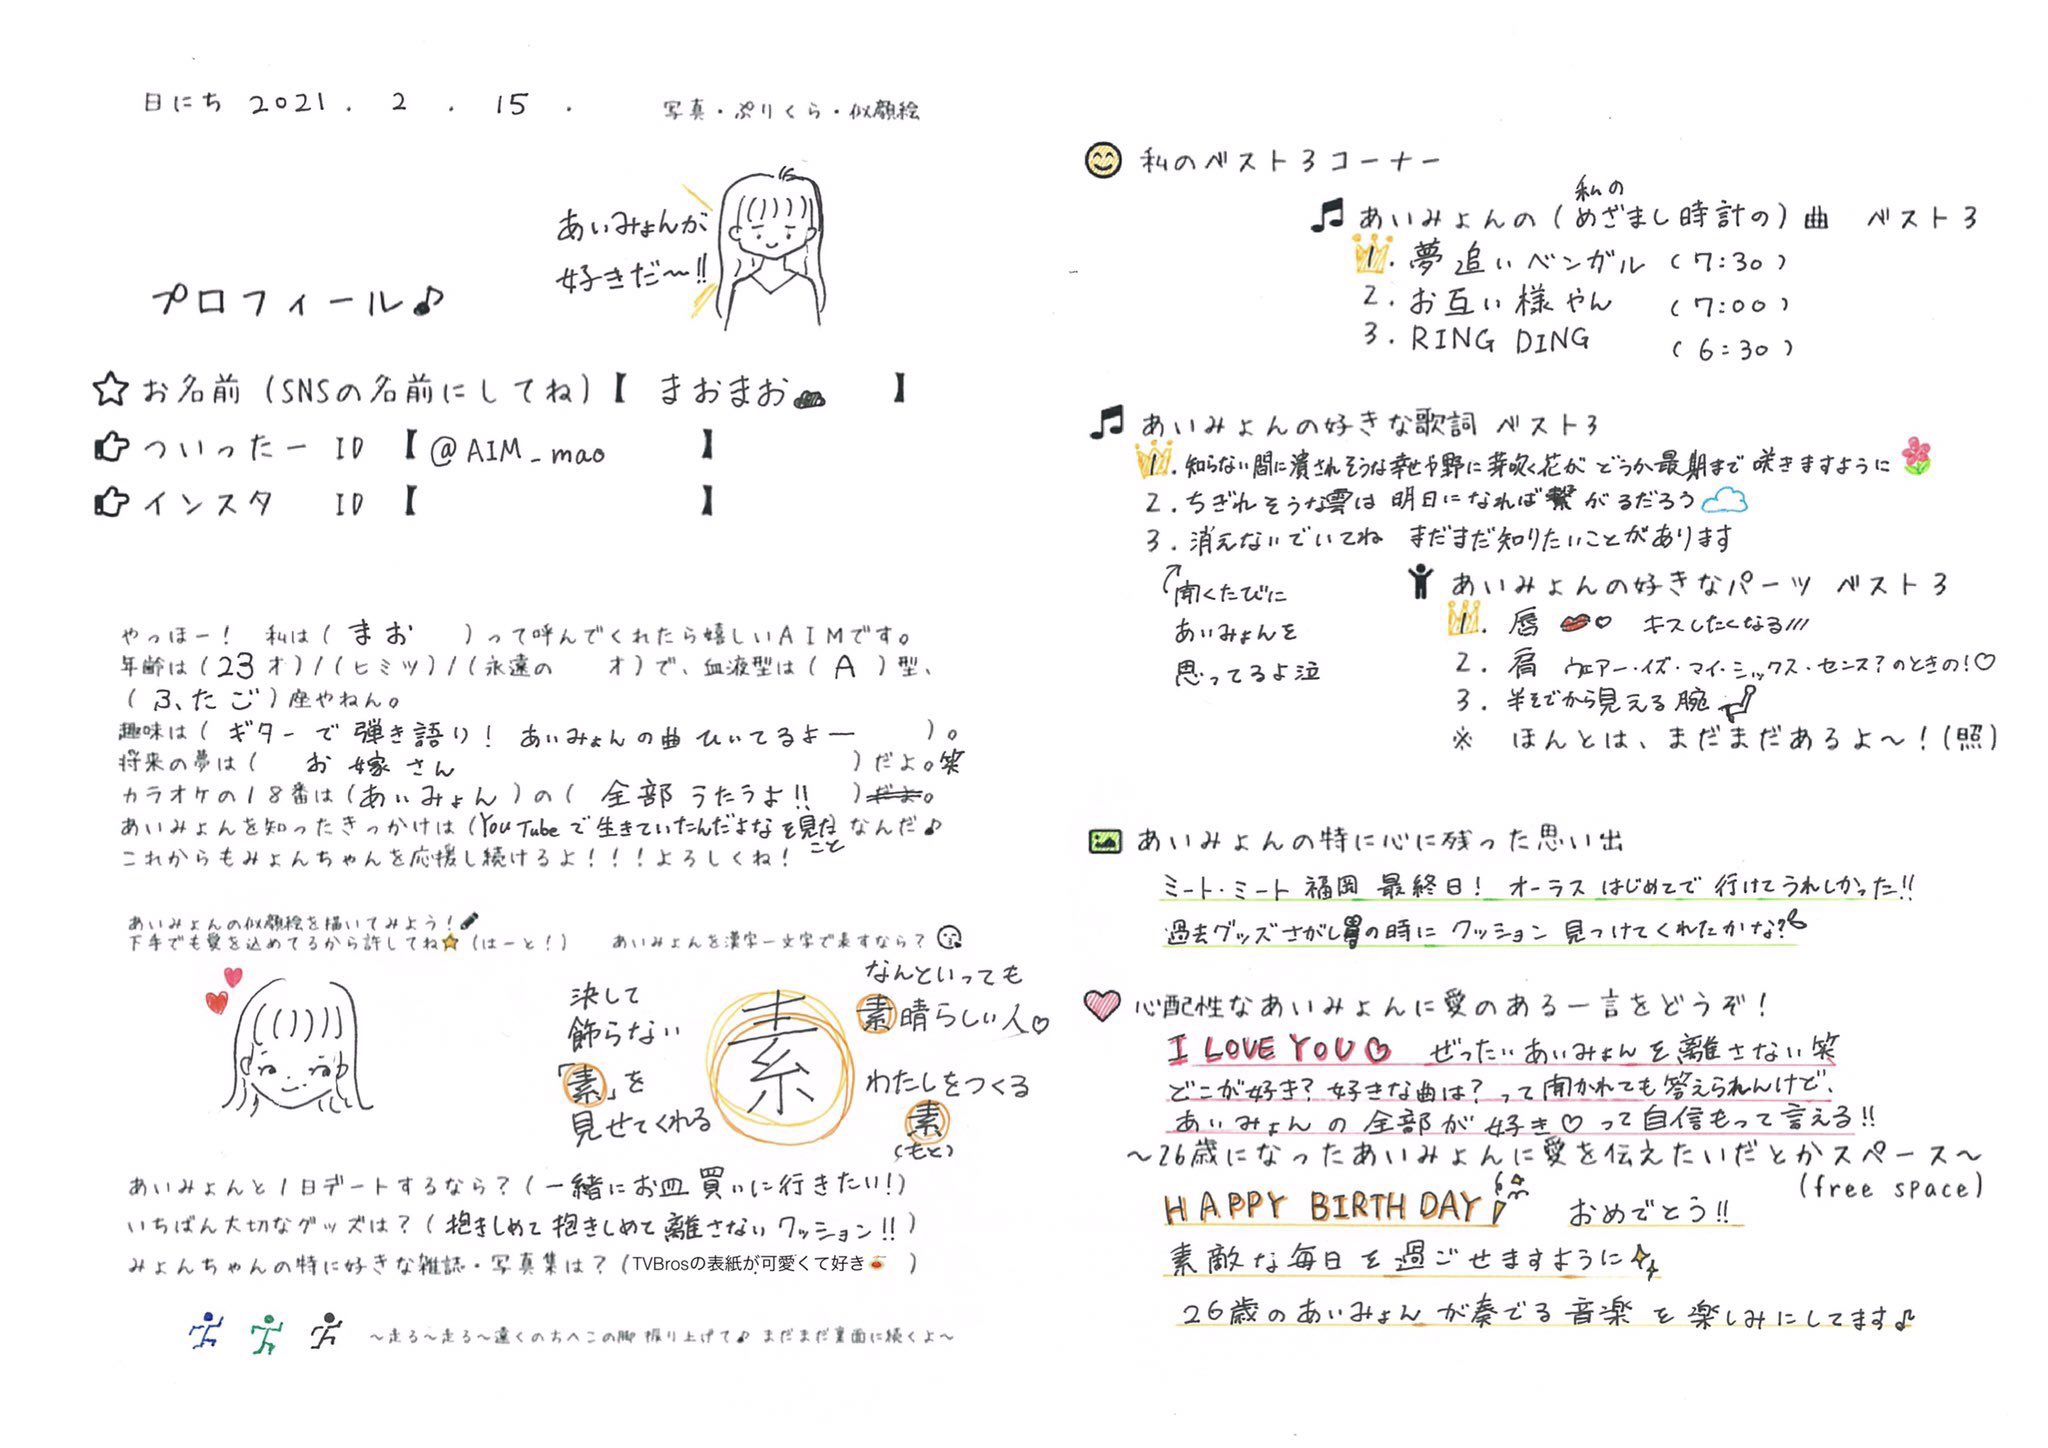 日にち 2021 . 2 . 15 .
写真・ぷりくら・似顔絵
あいみょんが
好きだ〜!!
プロフィール♪
☆お名前（SNSの名前にしてね）【 まおまお 】
ついったー ID 【 @AIM_mao 】
インスタ ID 【 】
やっほー！ 私は（ まお ）って呼んでくれたら嬉しいAIMです。
年齢は（23才）/（ヒミツ）/（永遠の 才）で、血液型は（ A ）型、
（ ふたご ）座やねん。
趣味は（ ギターで弾き語り！ あいみょんの曲ひいてるよー ）。
将来の夢は（ お嫁さん ）だよ。笑
カラオケの18番は（あいみょん）の（ 全部うたうよ!! ）だよ。
あいみょんを知ったきっかけは（YouTubeで生きていたんだよなを見たこと なんだ♪
これからもみょんちゃんを応援し続けるよ！！！よろしくね！
あいみょんの似顔絵を描いてみよう！
下手でも愛を込めてるから許してね（はーと！）
あいみょんを漢字一文字で表すなら？
決して
飾らない
「素」を
見せてくれる
素
なんといっても
素晴らしい人♡
わたしをつくる
素
（もと）
あいみょんと1日デートするなら？（一緒にお皿買いに行きたい!）
いちばん大切なグッズは？（抱きしめて抱きしめて離さないクッション!!）
みょんちゃんの特に好きな雑誌・写真集は？（TVBrosの表紙が可愛くて好き ）
〜走る〜走る〜遠くのちへこの脚振り上げて♪ まだまだ裏面に続くよ〜
私のベスト3コーナー
あいみょんの（私のめざまし時計の）曲 ベスト3
1. 夢追いベンガル （7:30）
2. お互い様やん （7:00）
3. RING DING （6:30）
あいみょんの好きな歌詞 ベスト3
1. 知らない間に潰されそうな幸せや野に芽吹く花がどうか最期まで咲きますように
2. ちぎれそうな雲は明日になれば繋がるだろう
3. 消えないでいてね まだまだ知りたいことがあります
聞くたびに
あいみょんを
思ってるよ泣
あいみょんの好きなパーツ ベスト3
1. 唇 ♡ キスしたくなる///
2. 肩 ウェアー・イズ・マイ・シックス・センス?のときの!♡
3. 半そでから見える腕
※ ほんとは、まだまだあるよ〜！（照）
あいみょんの特に心に残った思い出
ミート・ミート 福岡 最終日！ オーラス はじめてで行けてうれしかった!!
過去グッズさがし の時に クッション 見つけてくれたかな?
心配性なあいみょんに愛のある一言をどうぞ！
I LOVE YOU♡ ぜったいあいみょんを離さない笑
どこが好き？好きな曲は？って聞かれても答えられんけど、
あいみょんの全部が好き♡って自信もって言える!!
〜26歳になったあいみょんに愛を伝えたいだとかスペース〜
(free space)
HAPPY BIRTHDAY おめでとう!!
素敵な毎日を過ごせますように
26歳のあいみょんが奏でる音楽を楽しみにしてます♪